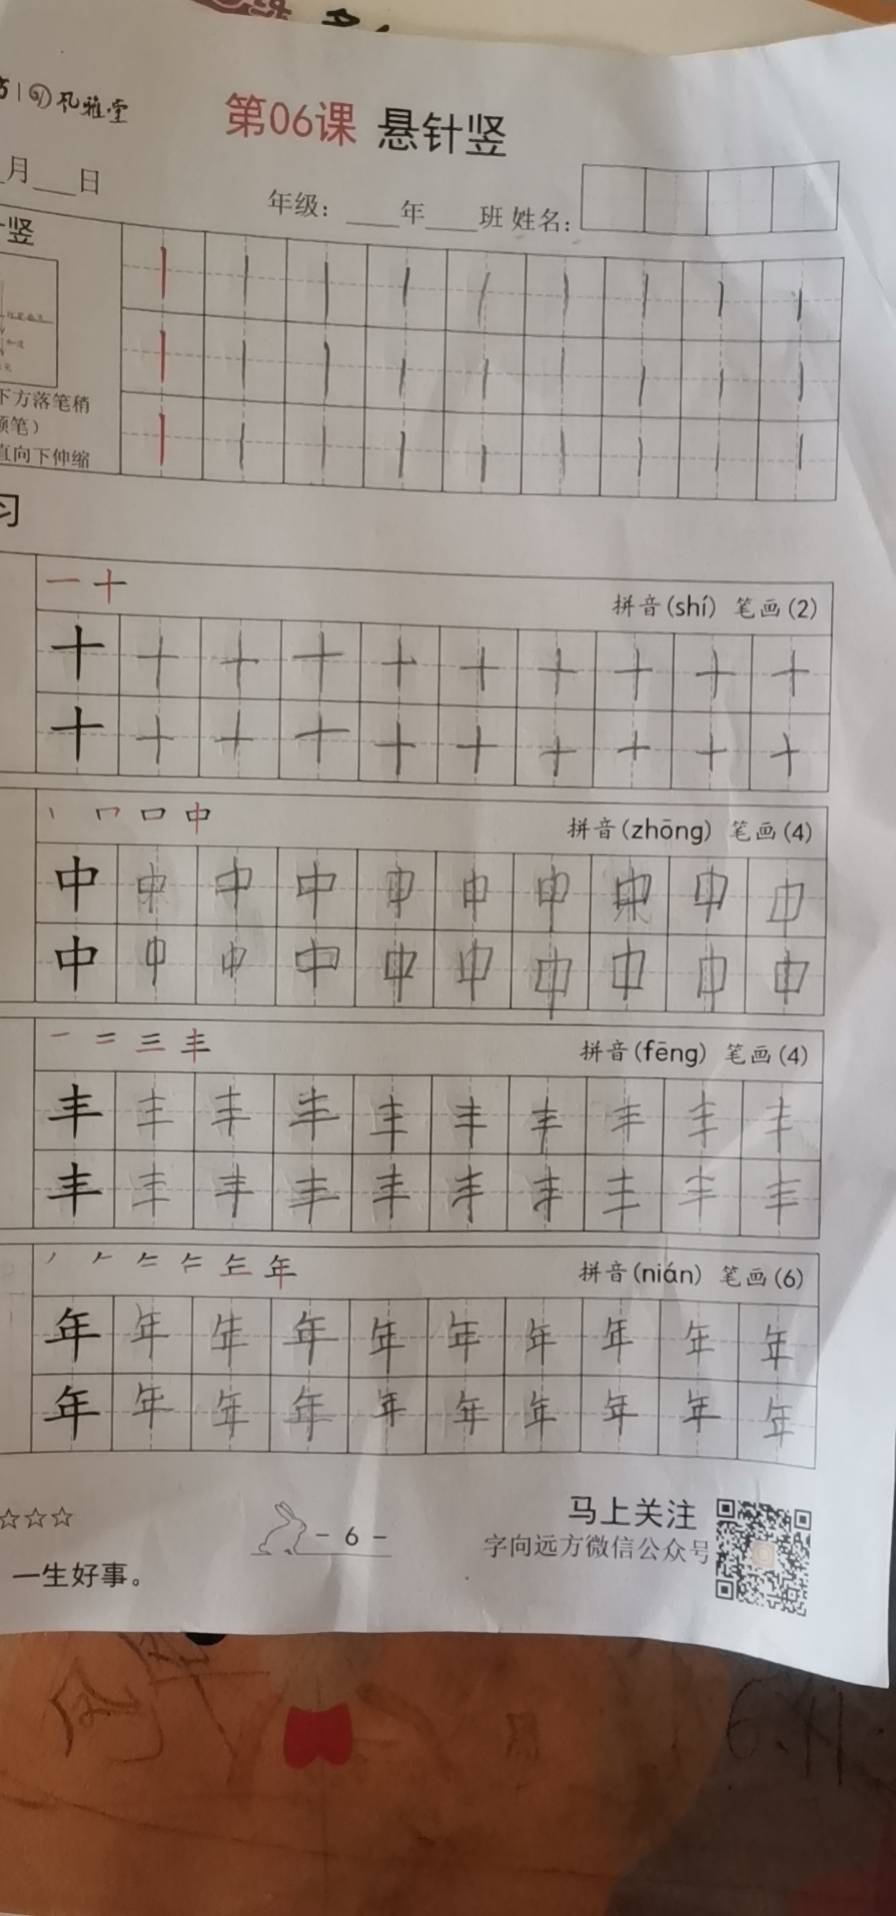 风雅堂
第06课 悬针竖
月___日
年级：____年____班 姓名：
竖
下方落笔稍
顿笔）
直向下伸缩
习
一 十
拼音(shí) 笔画(2)
十 十 十 十 十 十 十 十 十 十
十 十 十 十 十 十 十 十 十 十
丨 冂 口 中
拼音(zhōng) 笔画(4)
中 中 中 中 中 中 中 中 中 中
中 中 中 中 中 中 中 中 中 中
一 二 三 丰
拼音(fēng) 笔画(4)
丰 丰 丰 丰 丰 丰 丰 丰 丰 丰
丰 丰 丰 丰 丰 丰 丰 丰 丰 丰
年
拼音(nián) 笔画(6)
年 年 年 年 年 年 年 年 年 年
年 年 年 年 年 年 年 年 年 年
☆☆☆
- 6 -
马上关注
字向远方微信公众号
一生好事。